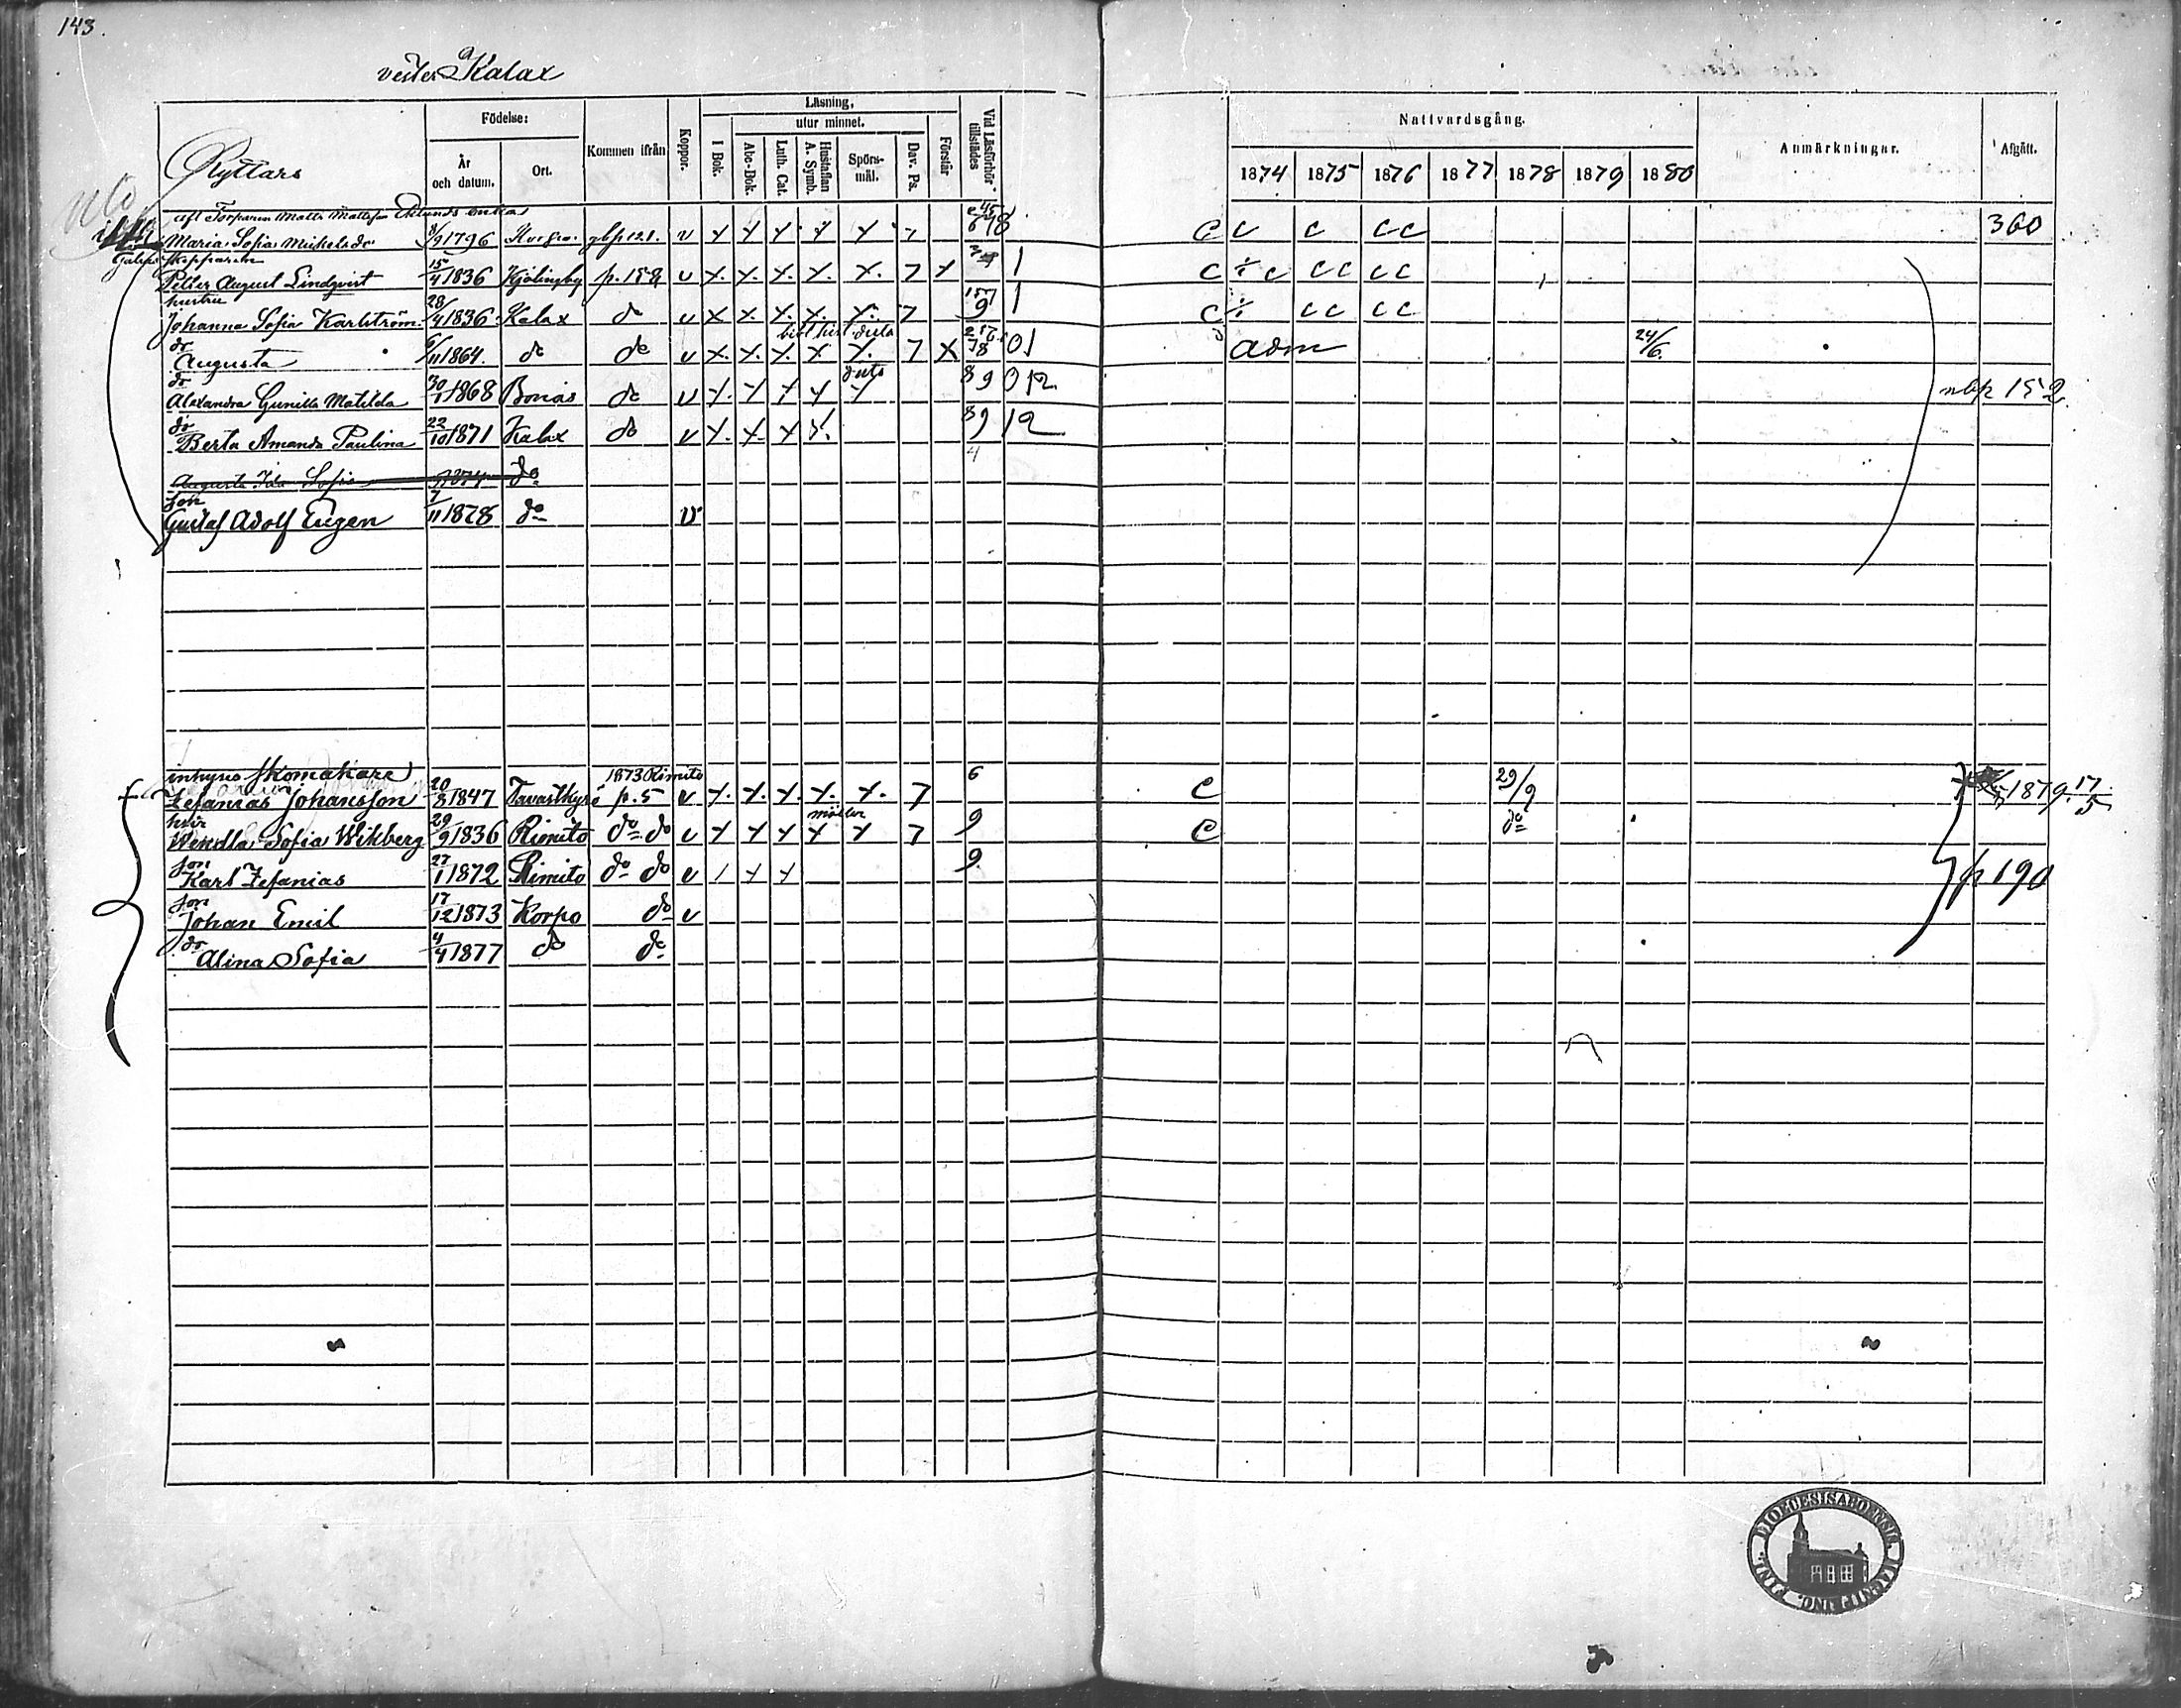 143.
vester Kalax
Ryttars
Födelse:
År och datum.
Ort.
Kommen ifrån
Koppor.
Läsning,
I Bok.
utur minnet.
Abc-Bok.
Luth. Cat.
Hustaflan A. Symb.
Spörs-mål.
Dav. Ps.
Förstår
Vid Läsförhör tillstädes
Nattvardsgång.
1874 1875 1876 1877 1878 1879 1880
Anmärkningar.
Afgått.
afl Torparen Matts Mattsson Eklunds enka
Maria Sofia Michelsdr 8/9 1796 gbp 121. v x x x x x 7 C c c cc 360
Skepparen
Petter August Lindqvist 15/4 1836 Kjölingby p. 158 v x. x. x. x. x. 7 x 1 C c cc cc
hustru
Johanna Sofia Karlström 28/4 1836 Kalax do v x x. x. x. x. 7 9 1 C cc cc
dr
Augusta 6/11 1864. do do v x. x. x. x x. 7 x 78 01 adm 24/6.
dr
Alexandra Gunilla Matilda 30/1 1868 Bonäs do v x. x x x x 89 012 nbp 152.
dr
Berta Amanda Paulina 22/10 1871 Kalax do v x. x. x x. 89 12
4
Augusta Ida Sofia 1874 do
son
Gustaf Adolf Eugen 7/11 1878 do v
inhyses Skomakare 1873 Rimito 6
Zefanias Johansson 20/3 1847 Tavastkyrö p. 5 v x. x. x. x. x. 7 C 29/9 1879 17/5
hur
Wendla Sofia Wikberg 29/9 1836 Rimito do do v x x x x x 7 9 C do
son
Karl Zefanias 27/1 1872 Rimito do do v / x x 9. p 190
son
Johan Emil 17/12 1873 Korpo do v
dr
Alina Sofia 4/4 1877 do do